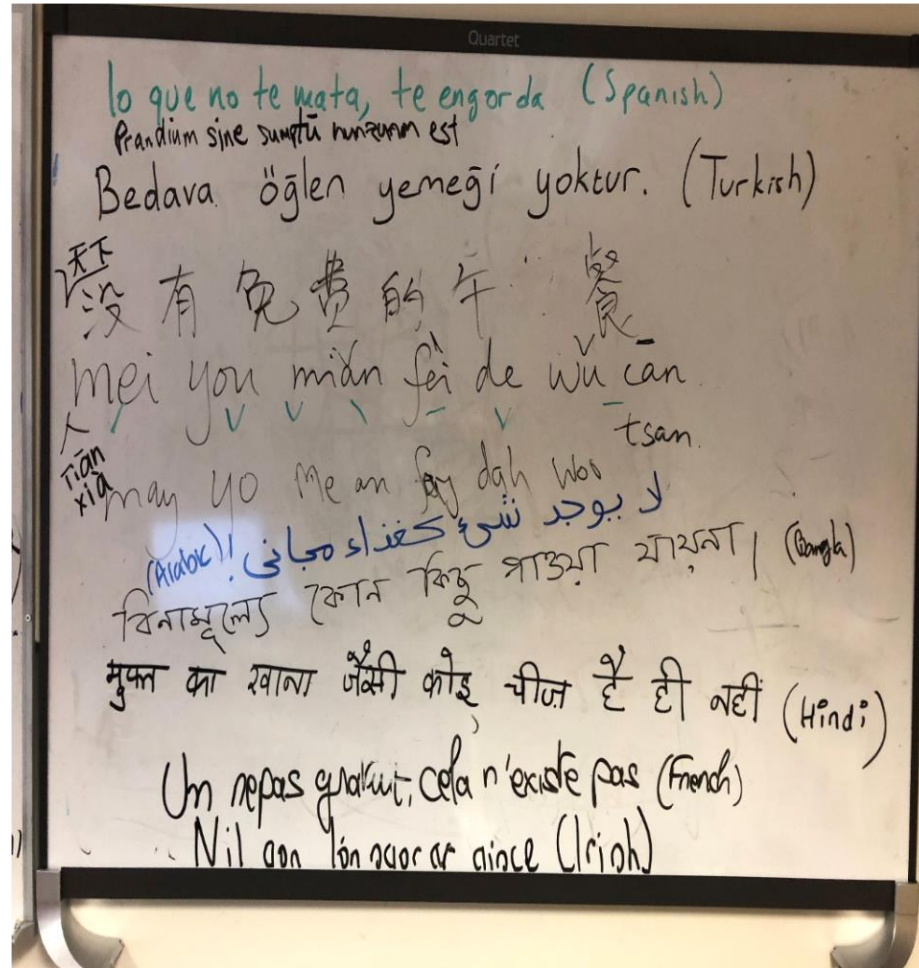 Quartet
lo que no te mata, te engorda (Spanish)
Prandium sine sumptū nunquam est
Bedava öğlen yemeği yoktur. (Turkish)
天下
没有免费的午餐
mei you miǎn fèi de wǔ cān
tsan.
人
Tiān
xià
may yo me an fay dah woo
لا يوجد شئ كغذاء مجانى! (Arabic)
বিনামূল্যে কোন কিছু পাওয়া যায়না। (Bangla)
मुफ्त का खाना जैसी कोइ चीज़ है ही नहीं (Hindi)
Un repas gratuit, cela n'existe pas (French)
Nil aon lón saor ar aince (Irish)